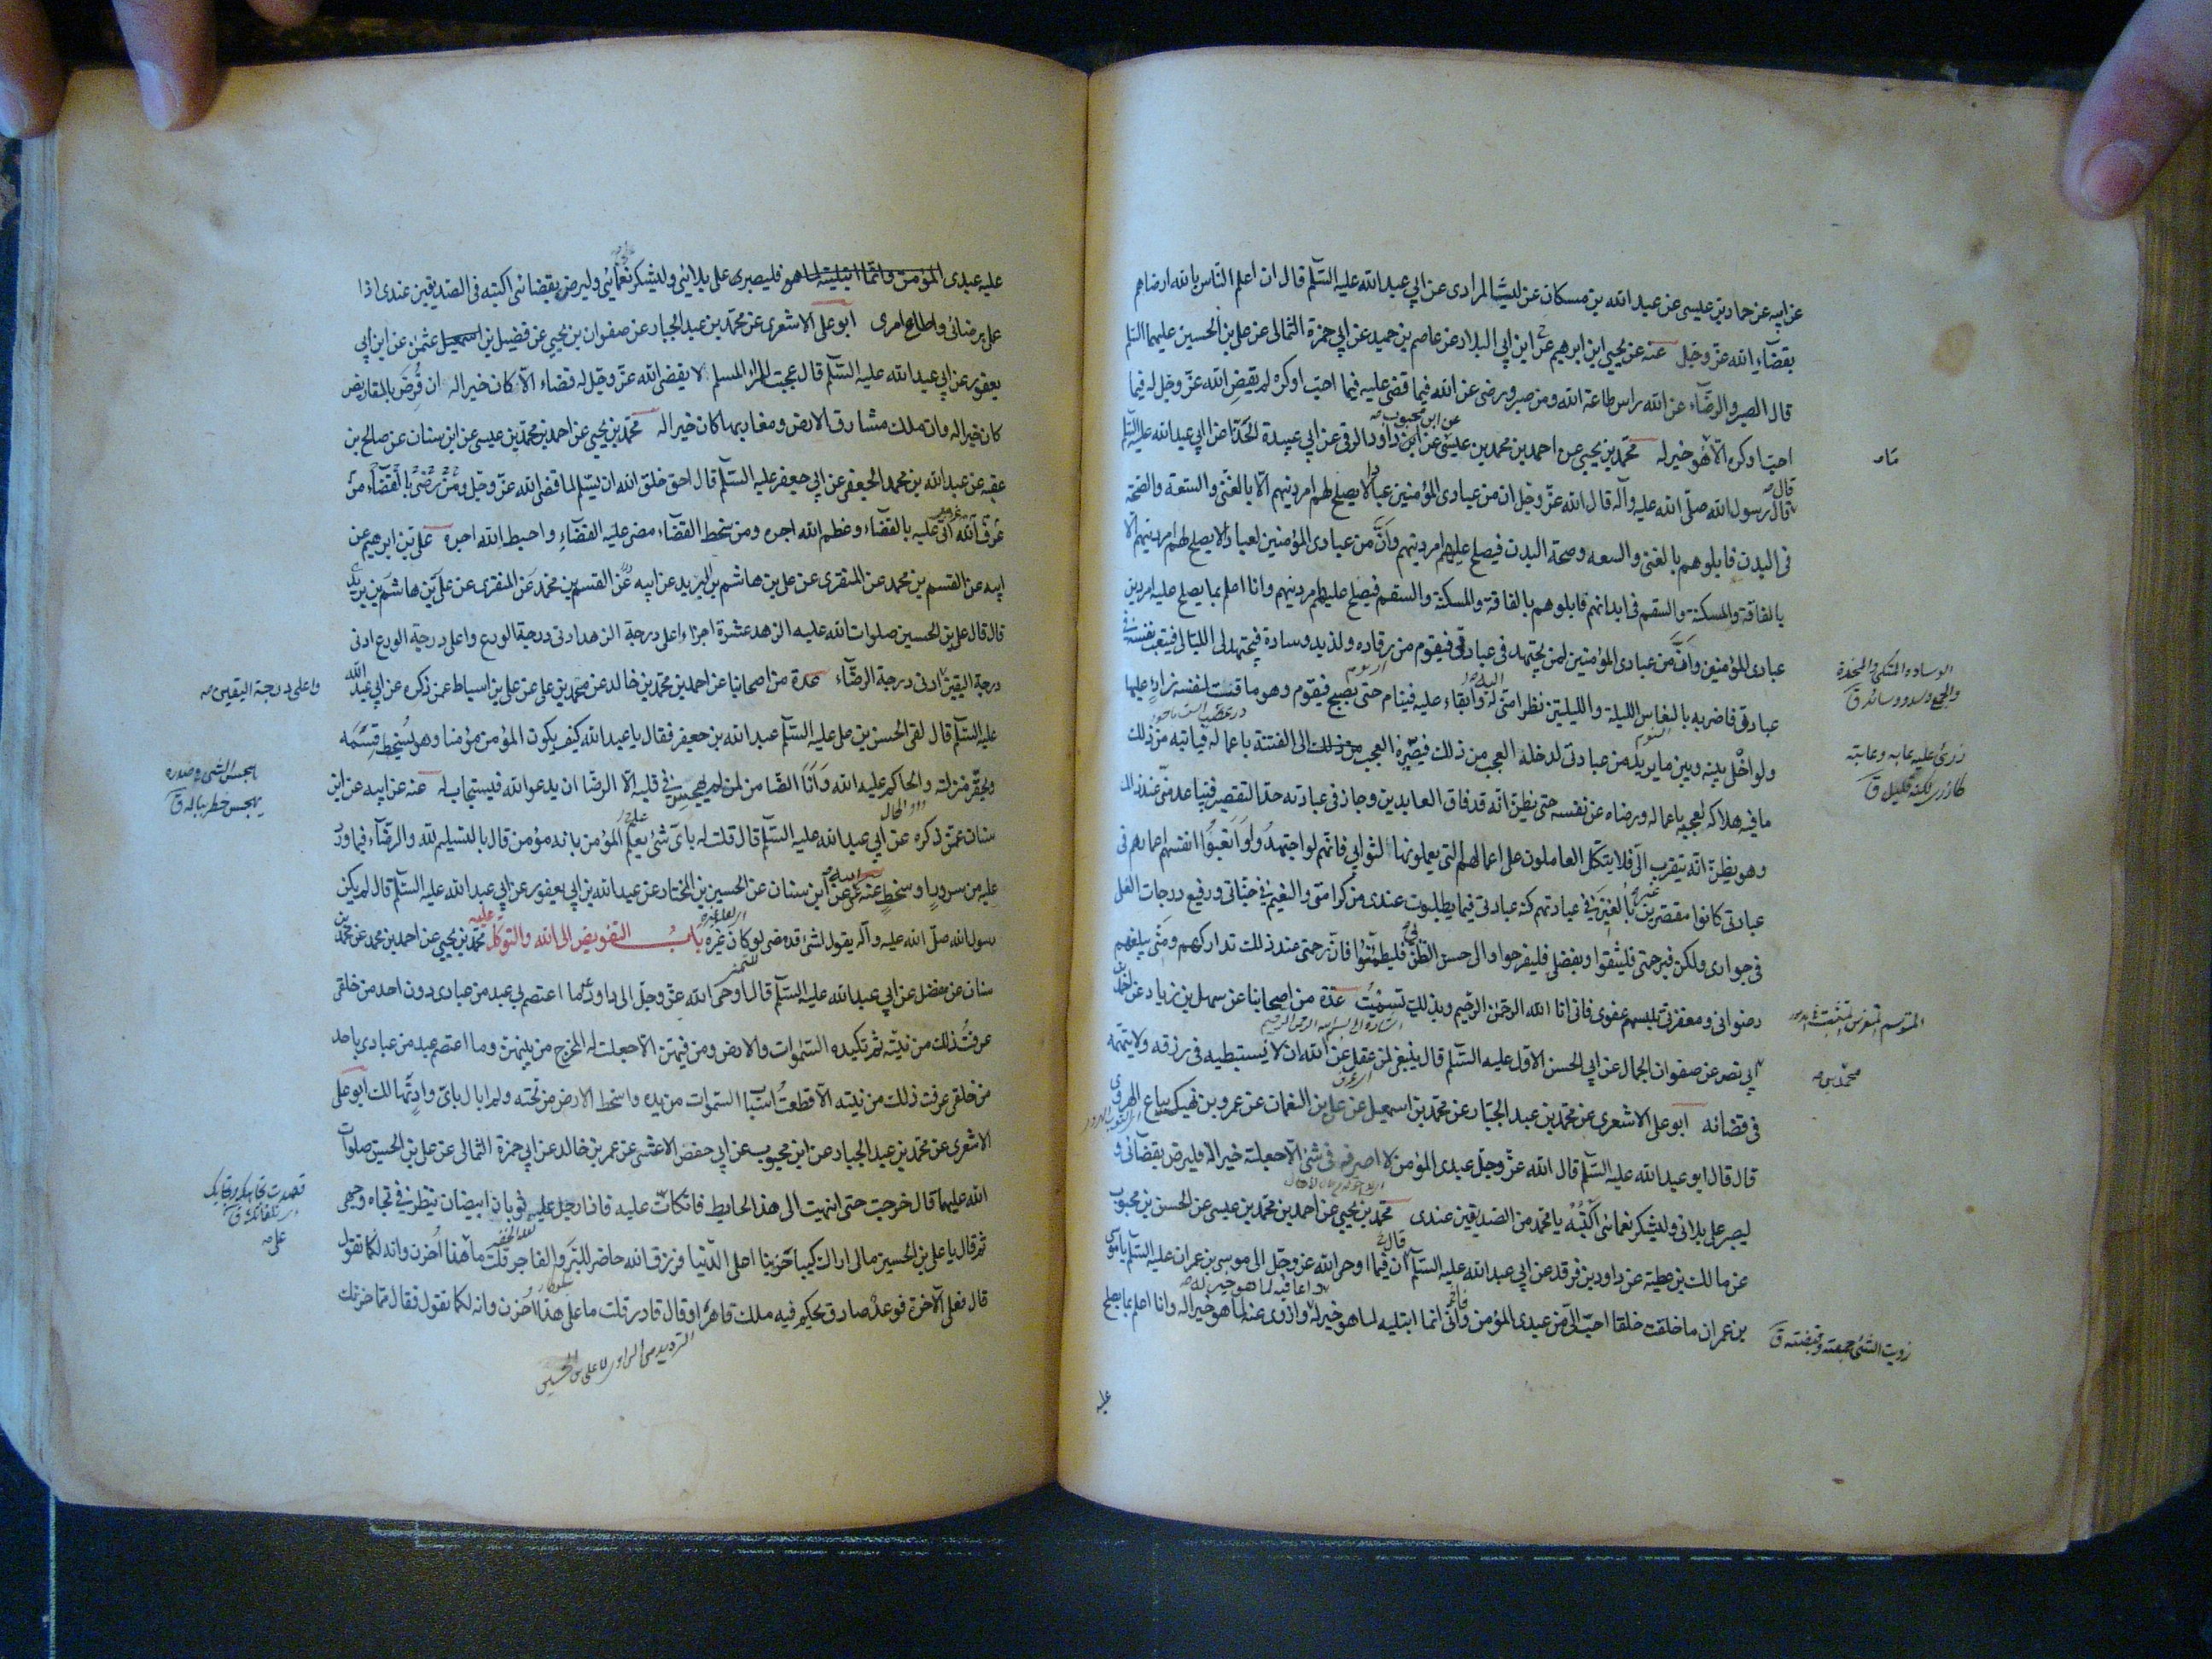 عن ابيه عن حماد بن عيسى عن عبد الله بن مسكان عن ليث المرادى عن ابي عبد الله عليه السلم قال ان اعلم الناس بالله ارضاهم
بقضاء الله عز وجل عنه عن يحيى ابن ابرهيم عن ابن ابى البلاد عن عاصم بن حميد عن ابي حمزة الثمالى عن على بن الحسين عليهما السلم
قال الصبر والرضاء عن الله راس طاعة الله ومن صبر ورضى عن الله فيما قضى عليه فيما احب اوكره لم يقض الله عز وجل له فيما
احب اوكره الا هو خير له محمد بن يحيى عن احمد بن محمد بن عيسى عن ابن محبوب عن داود الرقى عن ابي عبيدة الحذا عن ابي عبد الله عليه السلم
قال قال رسول الله صلى الله عليه وآله قال الله عز وجل ان من عبادى المؤمنين عبادا لا يصلح لهم امر دينهم الا بالغنى والسعة والصحة
فى البدن فابلوهم بالغنى والسعه وصحة البدن فيصلح عليهم امر دينهم وان من عبادى المؤمنين لعبادا لا يصلح لهم امر دينهم الا
بالفاقة والمسكنة والسقم فى ابدانهم فابلوهم بالفاقة والمسكنة والسقم فيصلح عليهم امر دينهم وانا اعلم بما يصلح عليه امر دين
عبادى المؤمنين وان من عبادى المؤمنين لمن يجتهد فى عبادتى فيقوم من رقاده ولذيذ وساده فيجتهد لى الليالى فيتعب نفسه فى
عبادتى فاضربه بالنعاس الليلة والليلتين نظرا منى له وابقاء عليه فينام حتى يصبح فيقوم وهو ماقت لنفسه زارئ عليها
ولو اخلى بينه وبين ما يريد من عبادتى لدخله العجب من ذلك فيصيره العجب الى الفتنة باعماله فياتيه من ذلك
ما فيه هلاكه لعجبه باعماله ورضاه عن نفسه حتى يظن انه قد فاق العابدين وجاز فى عبادته حد التقصير فيتباعد منى عند ذلك
وهو يظن انه يتقرب الى فلا يتكل العاملون على اعمالهم التى يعملونها لثوابى فانهم لو اجتهدوا واتعبوا انفسهم اعمارهم فى
عبادتى كانوا مقصرين غير بالغين فى عبادتهم كنه عبادتى فيما يطلبون عندى من كرامتى والنعيم فى جناتى ورفيع درجات العلى
فى جوارى ولكن فبرحمتى فليثقوا وبفضلى فليفرحوا والى حسن الظن بى فليطمئنوا فان رحمتى عند ذلك تداركهم ومنى يبلغهم
رضوانى ومغفرتى تلبسهم عفوى فانى انا الله الرحمن الرحيم وبذلك تسميت عدة من اصحابنا عن سهل بن زياد عن احمد بن
ابى نصر عن صفوان الجمال عن ابي الحسن الاول عليه السلم قال ينبغى لمن عقل عن الله ان لا يستبطيه فى رزقه ولا يتهمه
فى قضائه ابو على الاشعرى عن محمد بن عبد الجبار عن محمد بن اسمعيل عن على بن النعمان عن عمرو بن نهيك بياع الهروى
قال قال ابو عبد الله عليه السلم قال الله عز وجل عبدى المؤمن لا اصرفه فى شئ الا جعلته خيرا له فليرض بقضائى و
ليصبر على بلائى وليشكر نعمائى اكتبه يا محمد من الصديقين عندى محمد بن يحيى عن احمد بن محمد بن عيسى عن الحسن بن محبوب
عن مالك بن عطية عن داود بن فرقد عن ابي عبد الله عليه السلم قال ان فيما اوحى الله عز وجل الى موسى بن عمران عليه السلم يا موسى
بن عمران ما خلقت خلقا احب الى من عبدى المؤمن وانى انما ابتليه لما هو خير له واعافيه لما هو خير له وازوى عنه لما هو خير له وانا اعلم بما يصلح
الوساده المتكى والمخدة
والجمع وسد ووسائد ق
زرى عليه عابه وعاتبه
كازرى لكنه قليل ق
محمد بن
زويت الشئ جمعته وقبضته ق
عليه عبدى فليصبر على بلائى وليشكر نعمائى وليرض بقضائى اكتبه فى الصديقين عندى اذا
عمل برضائى واطاع امرى ابو على الاشعرى عن محمد بن عبد الجبار عن صفوان بن يحيى عن فضيل بن عثمن عن ابن ابي
يعفور عن ابي عبد الله عليه السلم قال عجبت للمرء المسلم لا يقضى الله عز وجل له قضاء الا كان خيرا له ان قرض بالمقاريض
كان خيرا له وان ملك مشارق الارض ومغاربها كان خيرا له محمد بن يحيى عن احمد بن محمد بن عيسى عن ابن سنان عن صالح بن
عقبه عن عبد الله بن محمد الجعفى عن ابي جعفر عليه السلم قال احق خلق الله ان يسلم لما قضى الله عز وجل من
عرف الله اتى عليه بالقضاء وعظم الله اجره ومن سخط القضاء مضى عليه القضاء واحبط الله اجره على بن ابرهيم عن
ابيه عن القسم بن محمد عن المنقرى عن على بن هاشم بن البريد عن ابيه
قال قال على بن الحسين صلوات الله عليه الزهد عشرة اجزاء اعلى درجة الزهد ادنى درجة الورع واعلى درجة الورع ادنى
درجة اليقين ادنى درجة الرضاء عدة من اصحابنا عن احمد بن محمد بن خالد عن محمد بن على عن على بن اسباط عمن ذكره عن ابي عبد الله
عليه السلم قال لقى الحسن بن على عليه السلم عبد الله بن جعفر فقال يا عبد الله كيف يكون المؤمن مؤمنا وهو يسخط قسمه
ويحقر منزلته والحاكم عليه الله وانا الضامن لمن لم يهجس فى قلبه الا الرضا ان يدعو الله فيستجاب له عنه عن ابيه عن ابن
سنان عمن ذكره عن ابي عبد الله عليه السلم قال قلت له باى شئ يعلم المؤمن بانه مؤمن قال بالتسليم لله والرضاء فيما ورد
عليه من سرور او سخط عنه عن ابيه عن ابن سنان عن الحسين بن المختار عن عبد الله بن ابي يعفور عن ابي عبد الله عليه السلم قال لم يكن
رسول الله صلى الله عليه وآله يقول لشئ قد مضى لو كان غيره باب التفويض الى الله والتوكل عليه محمد بن يحيى عن احمد بن محمد عن محمد بن
سنان عن مفضل عن ابي عبد الله عليه السلم قال اوحى الله عز وجل الى داود ما اعتصم بى عبد من عبادى دون احد من خلقى
عرفت ذلك من نيته ثم تكيده السموات والارض ومن فيهن الا جعلت له المخرج من بينهن وما اعتصم عبد من عبادى باحد
من خلقى عرفت ذلك من نيته الا قطعت اسباب السموات من يده واسخت الارض من تحته ولم ابال باى واد تهالك ابو على
الاشعرى عن محمد بن عبد الجبار عن ابن محبوب عن ابي حفص الاعشى عن عمر بن خالد عن ابي حمزة الثمالى عن على بن الحسين صلوات
الله عليهما قال خرجت حتى انتهيت الى هذا الحايط فاتكأت عليه فاذا رجل عليه ثوبان ابيضان ينظر فى تجاه وجهى
ثم قال يا على بن الحسين مالى اراك كئيبا حزينا اعلى الدنيا فرزق الله حاضر للبر والفاجر قلت ما على هذا احزن وانه لكما تقول
قال فعلى الآخرة فوعد صادق يحكم فيه ملك قاهر او قال قادر قلت ما على هذا احزن وانه لكما تقول فقال مما حزنك
واعلى درجة اليقين
الترديد من الراوى لا على بن الحسين